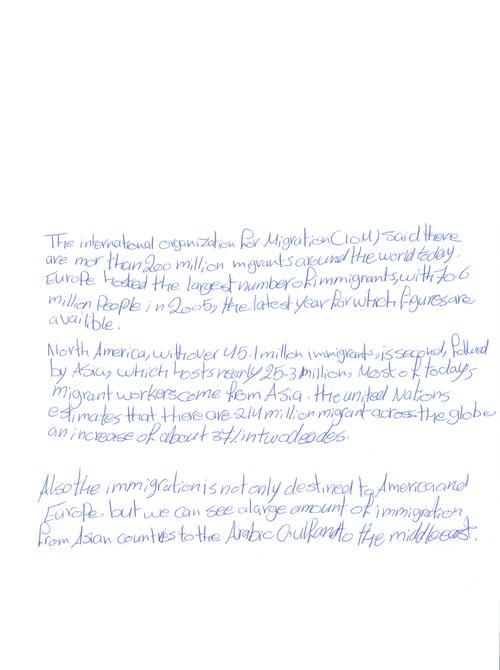 The international organization for Migration (IOM) said there
are mor than 200 million migrants around the world today.
Europe hosted the largest number of immigrants, with 70.6
million People in 2005, the latest year for which figures are
availible.
North America, with over 45.1 million immigrants, is second, followed
by Asia, which hosts nearly 25.3 million. Most of todays
migrant workers come from Asia. the united Nations
estimates that there are 214 million migrant across the globe
an increase of about 37% in two decades.
Also the immigration is not only destined to America and
Europe. but we can see a large amount of immigration
from Asian countries to the Arabic Gulf and to the middle east.